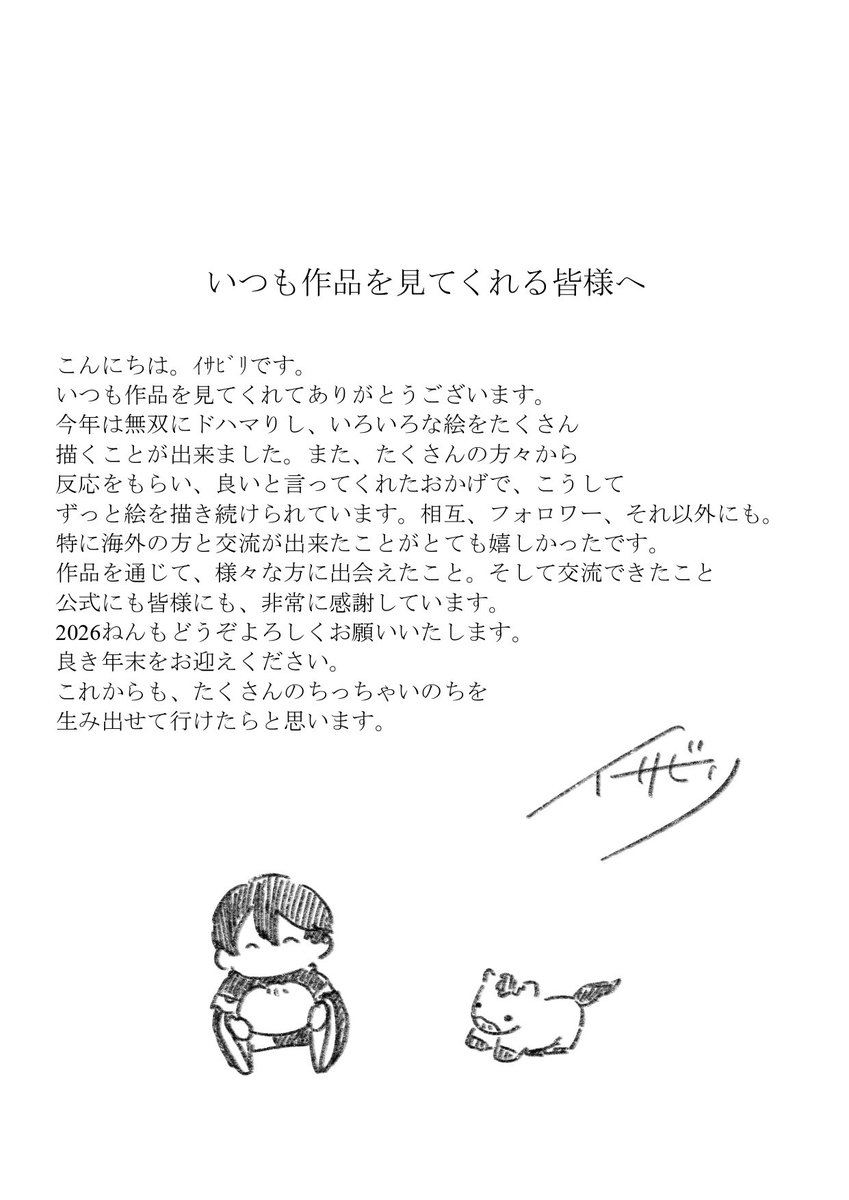 いつも作品を見てくれる皆様へ
こんにちは。ｲｻﾋﾞﾘです。
いつも作品を見てくれてありがとうございます。
今年は無双にドハマりし、いろいろな絵をたくさん
描くことが出来ました。また、たくさんの方々から
反応をもらい、良いと言ってくれたおかげで、こうして
ずっと絵を描き続けられています。相互、フォロワー、それ以外にも。
特に海外の方と交流が出来たことがとても嬉しかったです。
作品を通じて、様々な方に出会えたこと。そして交流できたこと
公式にも皆様にも、非常に感謝しています。
2026ねんもどうぞよろしくお願いいたします。
良き年末をお迎えください。
これからも、たくさんのちっちゃいのちを
生み出せて行けたらと思います。
イサビリ